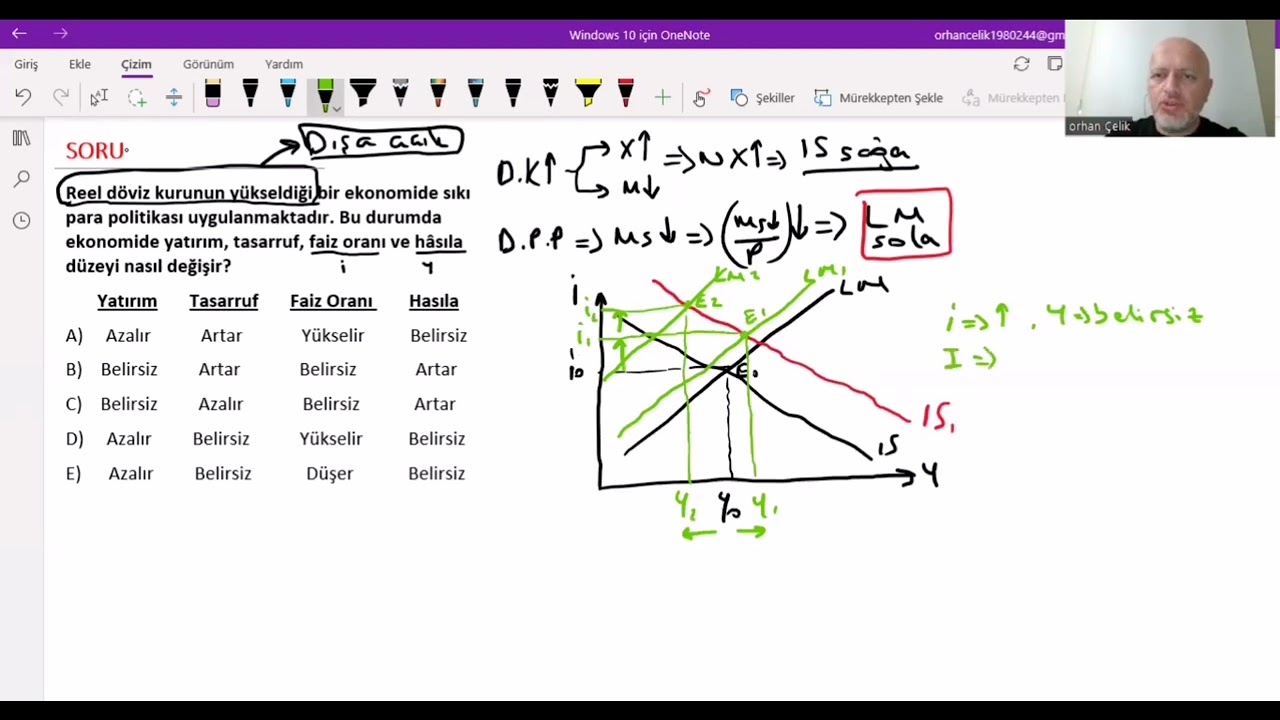 Windows 10 için OneNote
orhancelik1980244@gm
Giriş Ekle Çizim Görünüm Yardım
Şekiller
Mürekkepten Şekle
Mürekkepten
orhan Çelik
SORU
Dışa açık
Reel döviz kurunun yükseldiği bir ekonomide sıkı
para politikası uygulanmaktadır. Bu durumda
ekonomide yatırım, tasarruf, faiz oranı ve hâsıla
düzeyi nasıl değişir?
i y
Yatırım Tasarruf Faiz Oranı Hasıla
A) Azalır Artar Yükselir Belirsiz
B) Belirsiz Artar Belirsiz Artar
C) Belirsiz Azalır Belirsiz Artar
D) Azalır Belirsiz Yükselir Belirsiz
E) Azalır Belirsiz Düşer Belirsiz
D.K↑ X↑ => NX↑ => IS sağa
M↓
D.P.P => Ms↓ => (Ms↓/P)↓ => LM sola
i LM2 LM1 LM
i2 E2
i1 E1
i0 E0
IS1
IS
Y
Y2 Y0 Y1
i => ↑ , Y => belirsiz
I =>